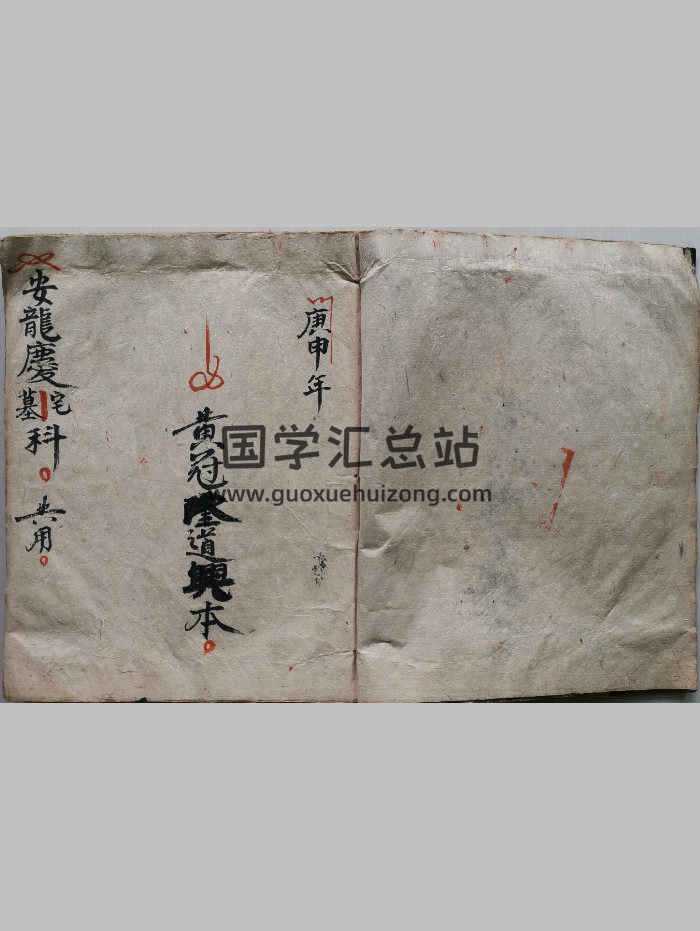 庚申年
黄冠隆道興本
安龍慶宅墓科 共用
国学汇总站
www.guoxuehuizong.com